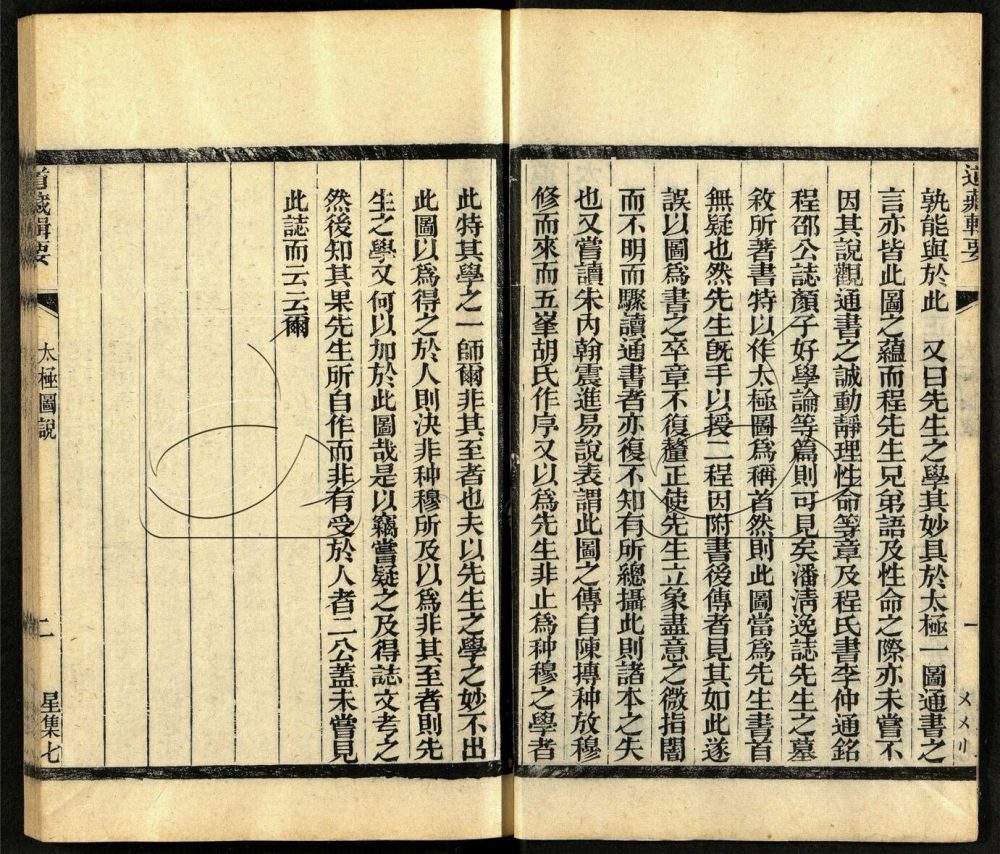 道藏輯要
孰能與於此　又曰先生之學其妙具於太極一圖通書之
言亦皆此圖之蘊而程先生兄弟語及性命之際亦未嘗不
因其說觀通書之誠動靜理性命等章及程氏書李仲通銘
程邵公誌顏子好學論等篇則可見矣潘清逸誌先生之墓
敘所著書特以作太極圖爲稱首然則此圖當爲先生書首
無疑也然先生旣手以授二程因附書後傳者見其如此遂
誤以圖爲書之卒章不復釐正使先生立象盡意之微指闇
而不明而驟讀通書者亦復不知有所總攝此則諸本之失
也又嘗讀朱內翰震進易說表謂此圖之傳自陳摶种放穆
修而來而五峯胡氏作序又以爲先生非止爲种穆之學者
此特其學之一師爾非其至者也夫以先生之學之妙不出
此圖以爲得之於人則決非种穆所及以爲非其至者則先
生之學又何以加於此圖哉是以竊嘗疑之及得誌文考之
然後知其果先生所自作而非有受於人者二公蓋未嘗見
此誌而云云爾
道藏輯要
太極圖說
二
星集七